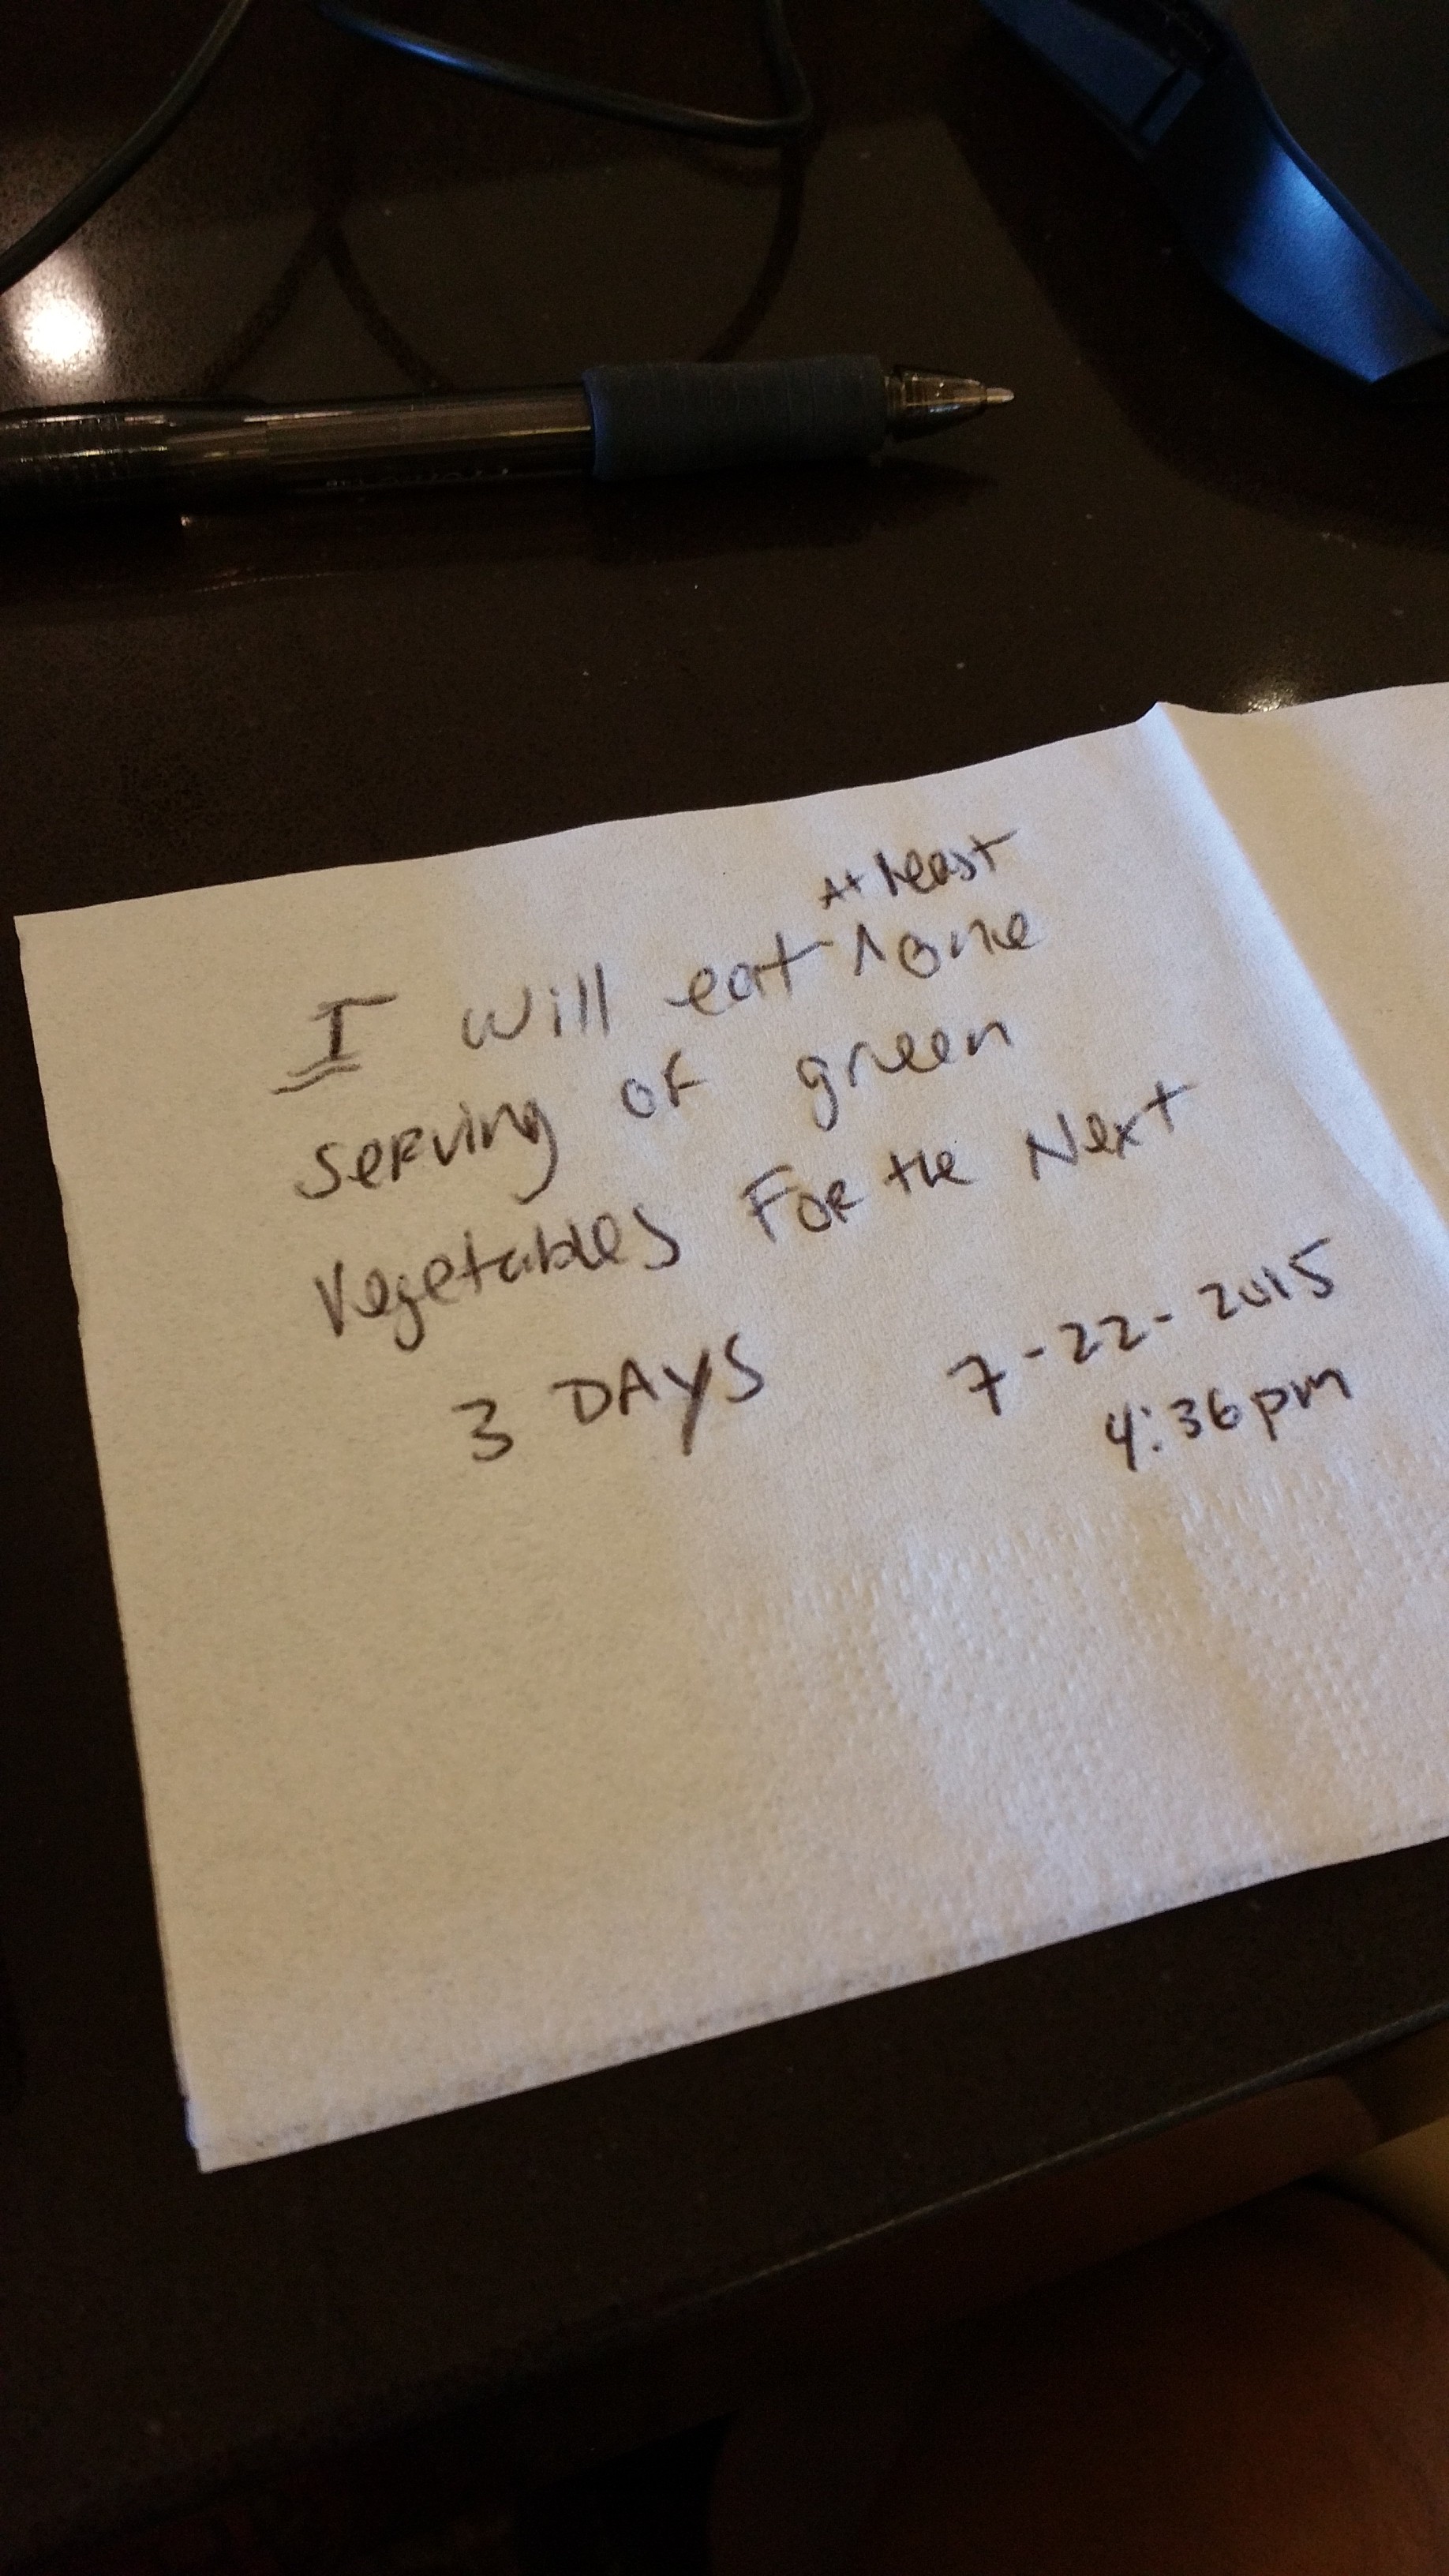 At least
I will eat ^ one
serving of green
vegetables FOR the Next
3 DAYS
7-22-2015
4:36pm